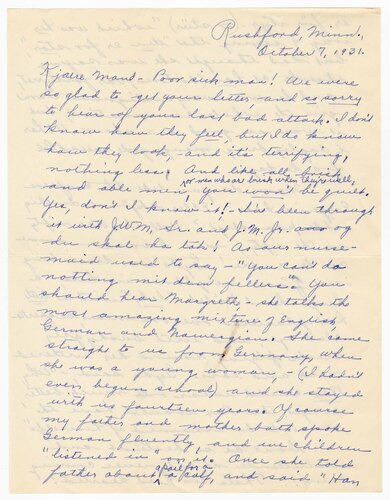 Rushford, Minn.,
October 7, 1931.
Kjaere Mand - Poor sick man! We were
so glad to get your letter, and so sorry
to hear of your last bad attack. I don't
know how they feel, but I do know
how they look, and it's terrifying,
nothing less! And like all brisk
(or men who are brisk when they're well)
and able men, you won't be quiet.
Yes, don't I know it! - I've been through
it with JWM, Sr. and J.M. Jr. and og
du skal ha tak! As our nurse-
maid used to say - "You can't do
notting mit dem fellers." You
should hear Margreth - she talks the
most amazing mixture of English,
German and Norwegian. She came
straight to us from Germany, when
she was a young woman, - (I hadn't
even begun school) and she stayed
with us fourteen years. Of course
my father and mother both spoke
German fluently, and we children
"listened in" on it. Once she told
a pail for a
father about a calf, and said "Han